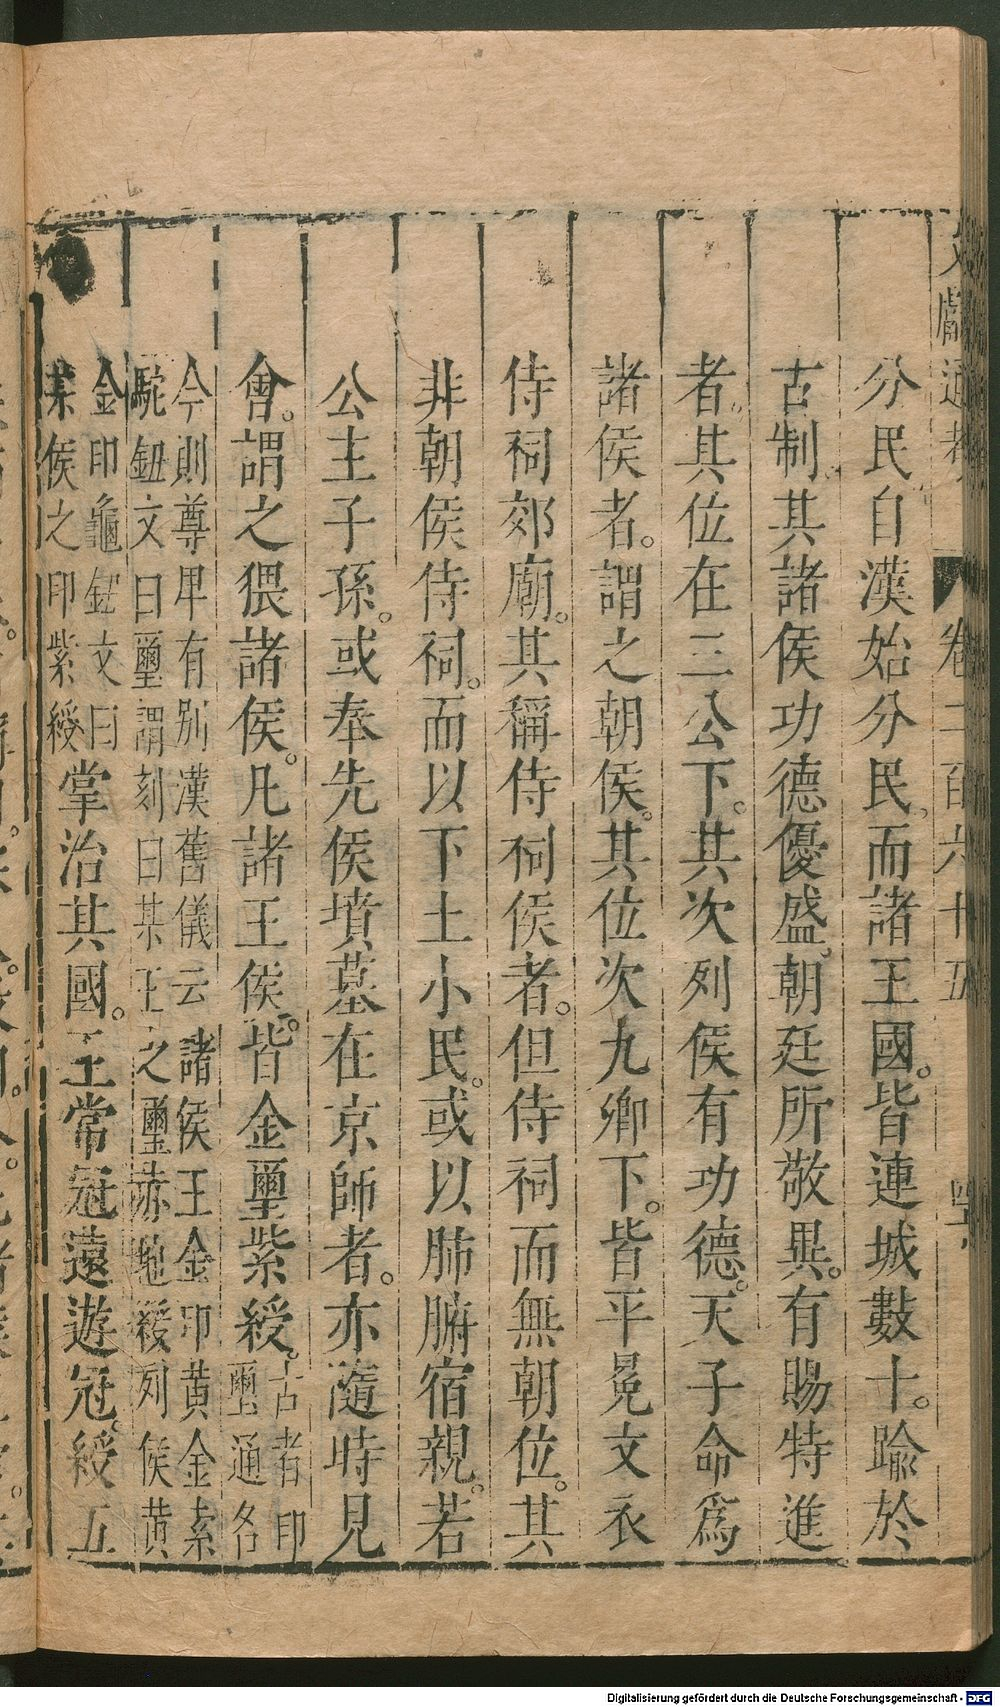 分民自漢始分民而諸王國。皆連城數十。踰於
古制其諸侯功德優盛。朝廷所敬異。有賜特進
者。其位在三公下。其次列侯有功德。天子命爲
諸侯者。謂之朝侯。其位次九卿下。皆平冕文衣
侍祠郊廟。其稱侍祠侯者。但侍祠而無朝位。其
非朝侯侍祠。而以下土小民。或以肺腑宿親。若
公主子孫。或奉先侯墳墓在京師者。亦隨時見
會。謂之猥諸侯。凡諸王侯。皆金璽紫綬。古者印璽通名
今則尊卑有別漢舊儀云諸侯王金印黃金橐
駝鈕文曰璽謂刻曰某王之璽赤地綬列侯黃
金印龜鈕文曰
某侯之印紫綬掌治其國。王常冠遠遊冠。綬五
文獻通考 卷二百六十五
Digitalisierung gefördert durch die Deutsche Forschungsgemeinschaft - DFG